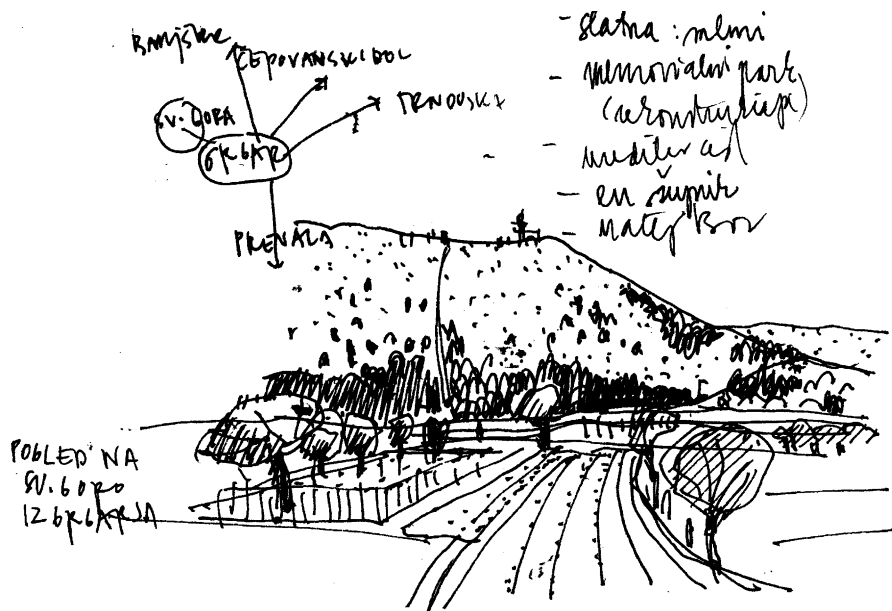 BANJŠICE
ČEPOVANSKI DOL
SV. GORA
TRNOVSKA
GRGAR
PREVALA
- slatna : mlini
- memorialni park
(rekonstrukcija)
-
- župnik
- Matej Bor
POGLED NA
SV. GORO
IZ GRGARJA